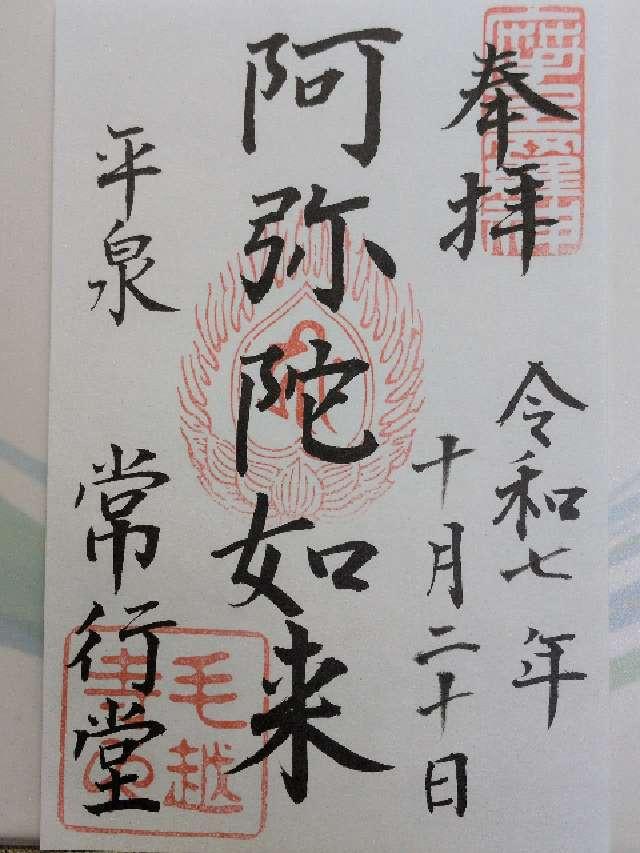 奉拝
令和七年
十月二十日
阿弥陀如来
平泉
常行堂
摩多羅神
毛越